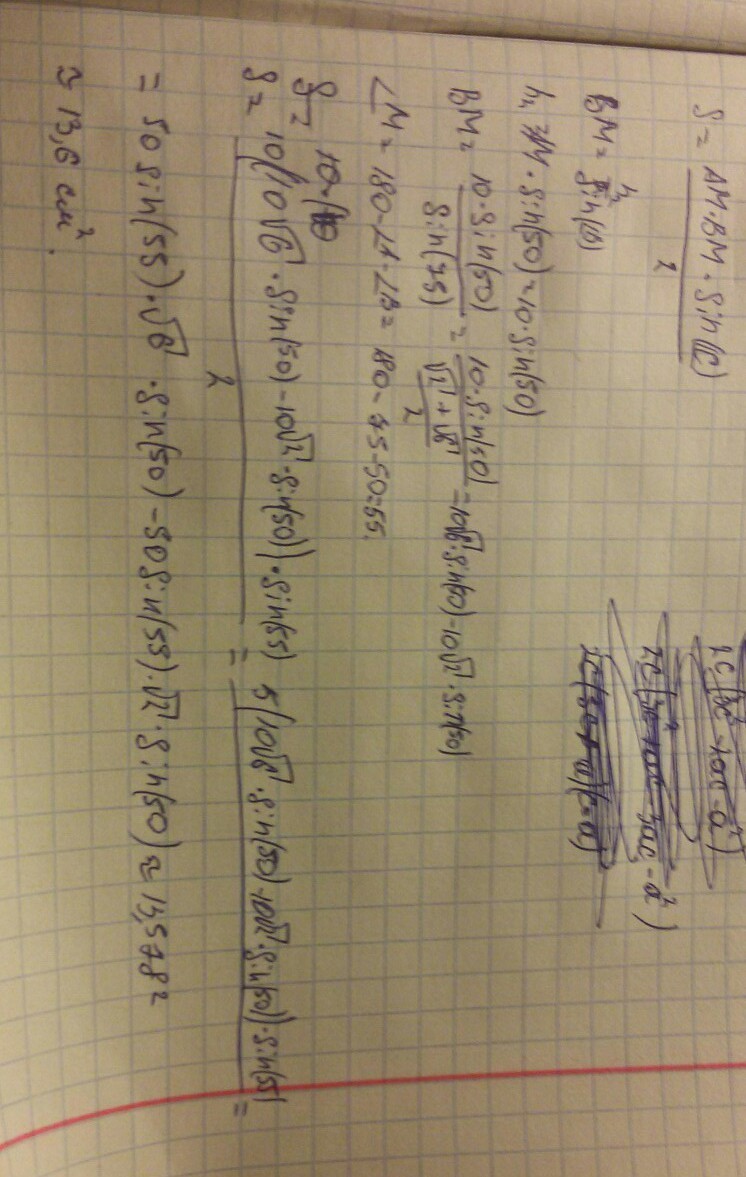 S = \frac{AM·BM·Sin(C)}{2}
BM = \frac{h}{Sin(B)}
h = AM·Sin(50) = 10·Sin(50)
BM = \frac{10·Sin(50)}{Sin(75)} = \frac{10·Sin(50)}{\frac{√2+√6}{2}} = 10√6·Sin(50)-10√2·Sin(50)
∠M = 180-∠A-∠B = 180-75-50=55.
S = \frac{10(10√6·Sin(50)-10√2·Sin(50))·Sin(55)}{2} = 5(10√6·Sin(50)-10√2·Sin(50))·Sin(55) =
= 50Sin(55)·√6·Sin(50)-50Sin(55)·√2·Sin(50) ≈ 13,578 ≈
≈ 13,6 см².